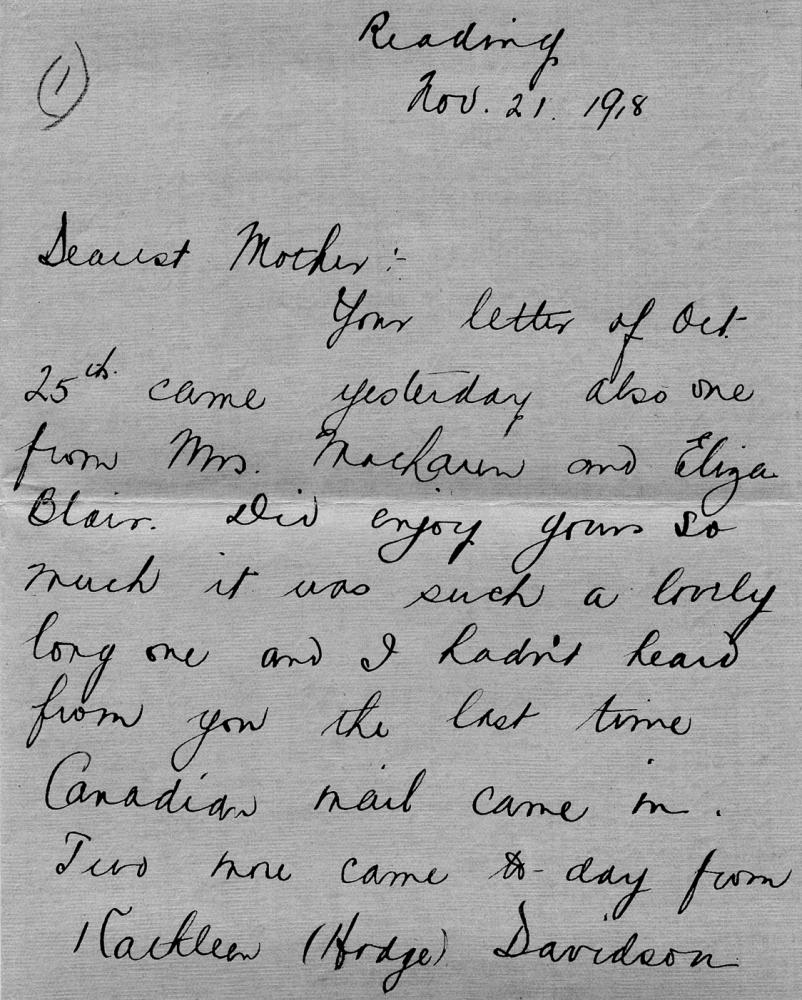 (1)
Reading
Nov. 21. 1918
Dearest Mother :-
Your letter of Oct.
25th. came yesterday also one
from Mrs. MacLaren and Eliza
Blair. Did enjoy yours so
much it was such a lovely
long one and I hadn't heard
from you the last time
Canadian mail came in.
Two more came to-day from
Kathleen (Hodge) Davidson